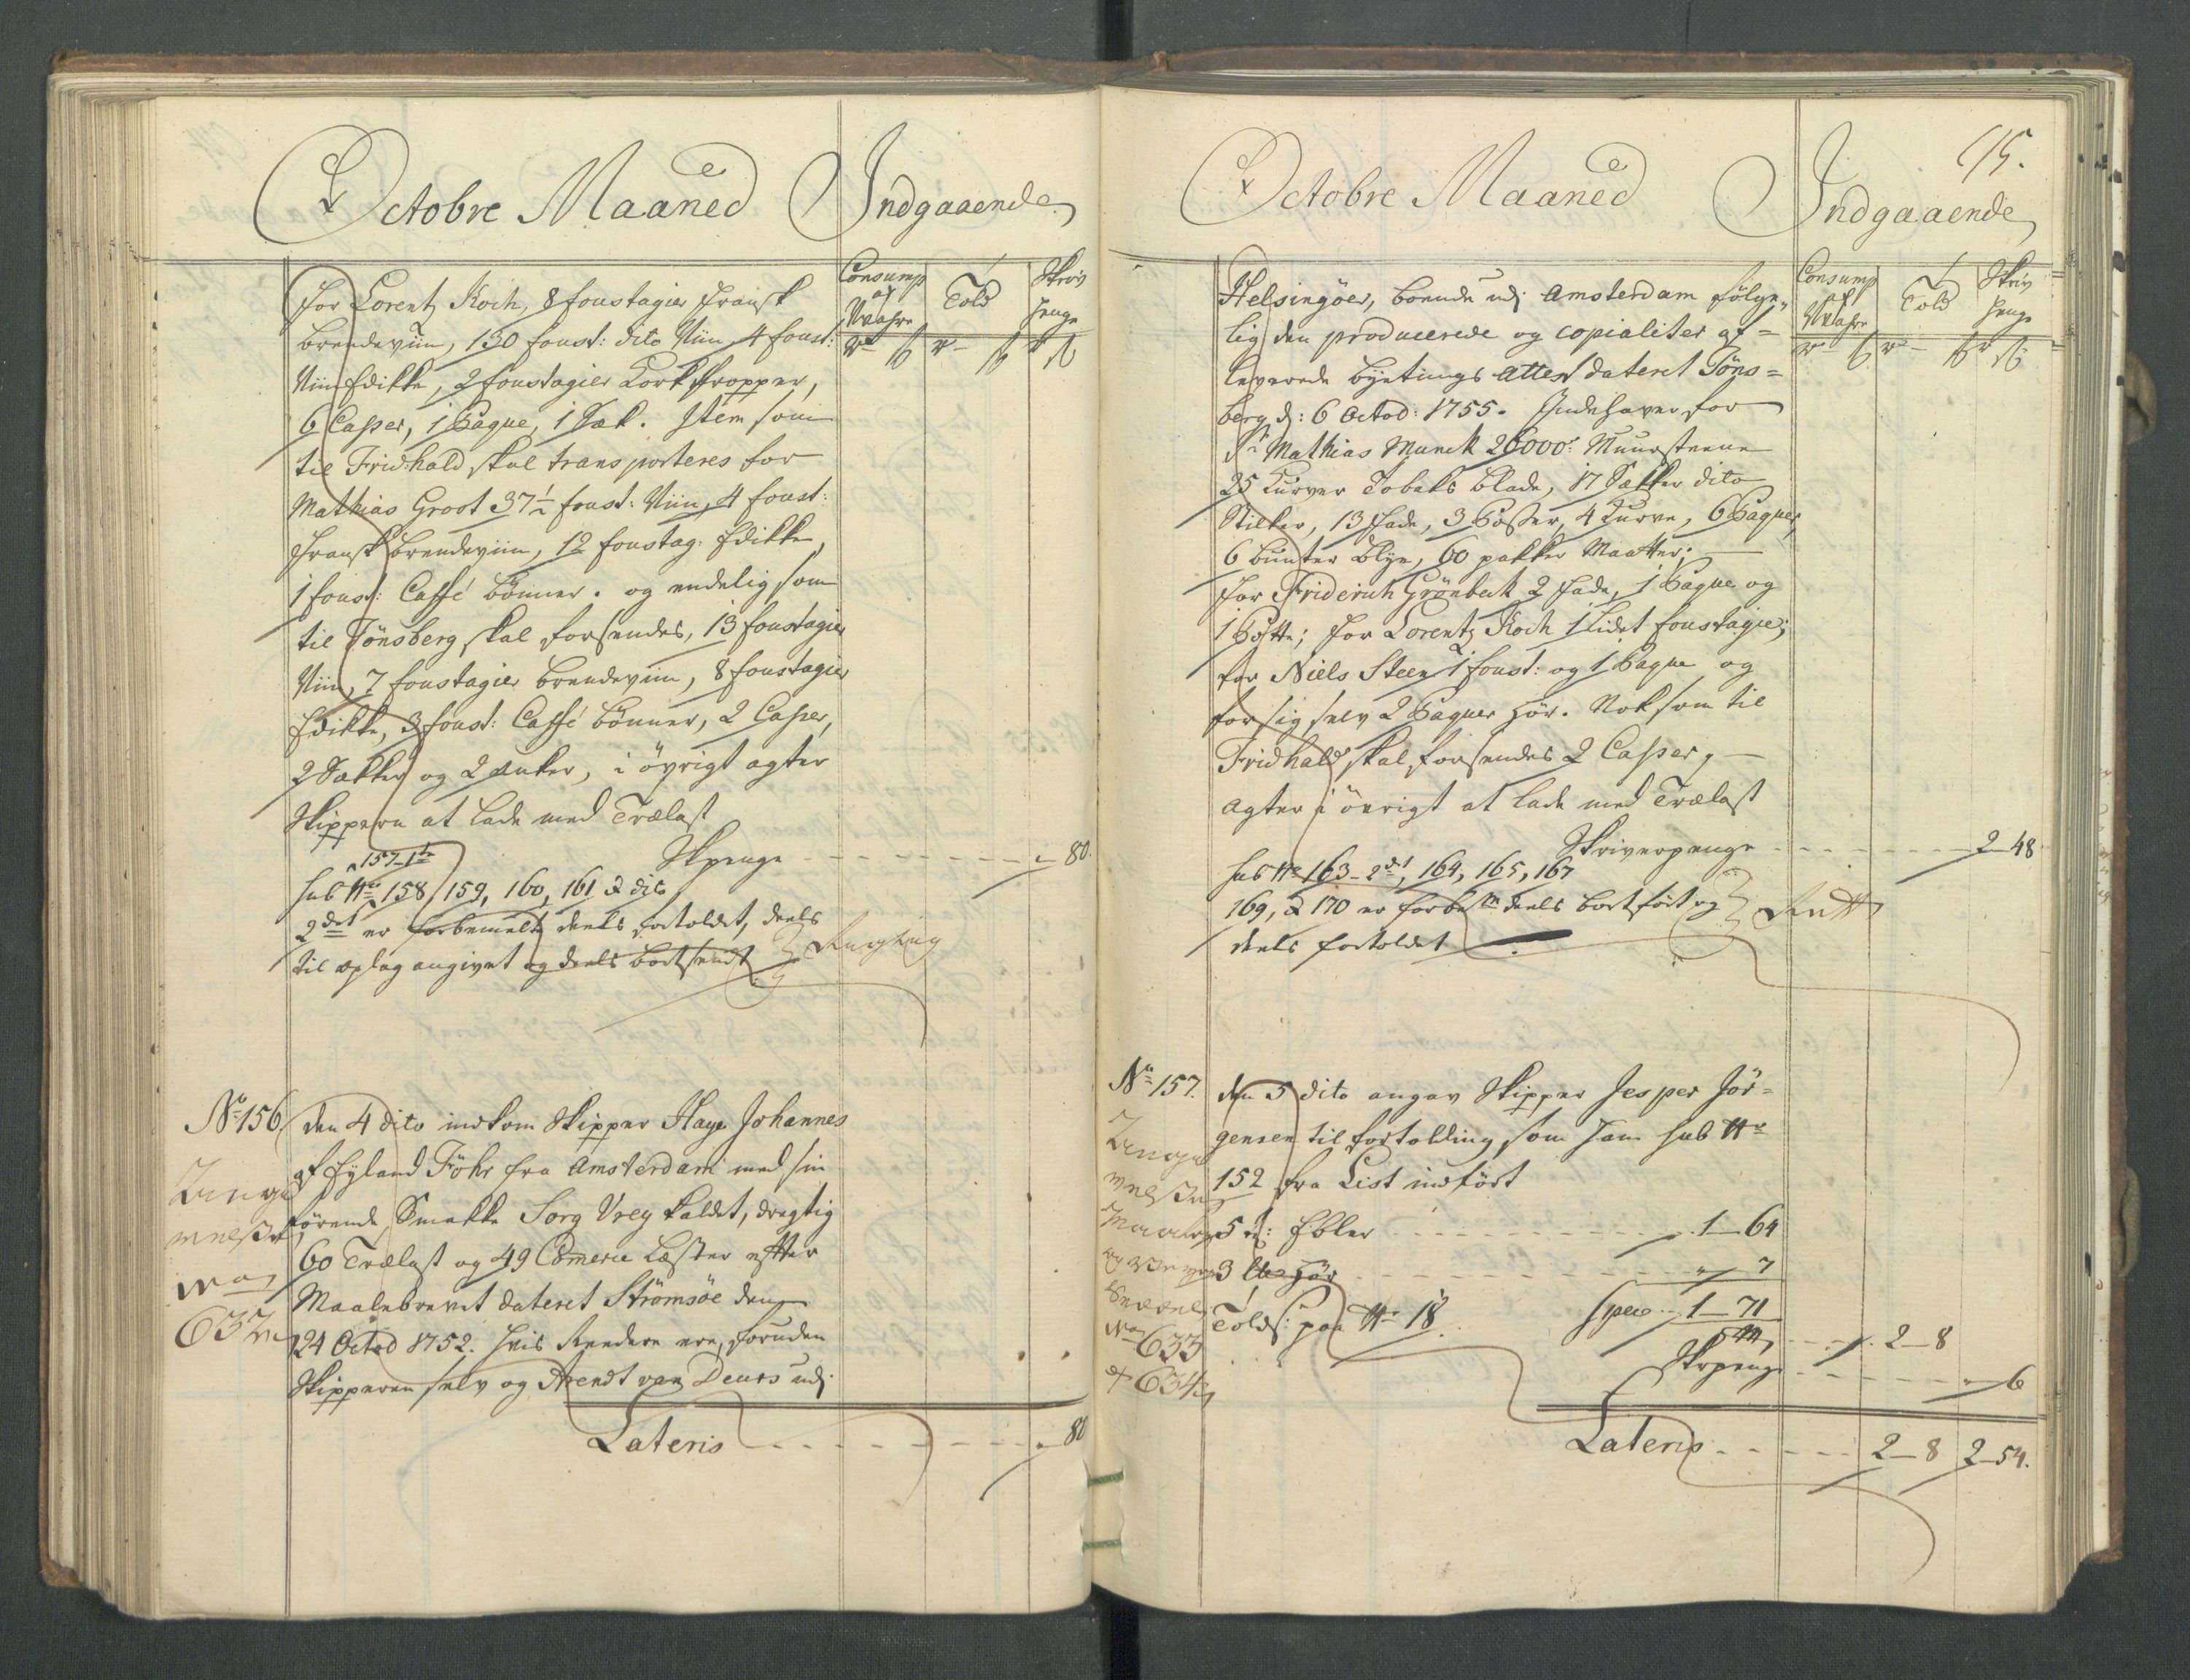 Octobre Maaned Indgaaende
Consump
af
Wahre
Told
Skriv
Penge
for Lorentz Koch, 8 foustagier Fransk
brendeviin, 130 foust: dito Viin, 4 foust:
Viin Edikke, 2 foustagier Korkpropper,
6 Casser, 1 Paque, 1 Sæk. Item som
til Fridhald skal transporteres for
Mathias Groot 37½ foust: Viin, 4 foust:
Fransk brendeviin, 12 foustag: Edikke,
1 foust: Caffé bönner. og endelig som
til Tönsberg skal forsendes, 13 foustagier
Viin, 7 foustagier brendeviin, 8 foustagier
Edikke, 3 foust: Caffé bönner, 2 Casser,
2 Sækker og 2 Anker, i övrigt agter
Skipperen at lade med Trælast
Skpenge - - - 80.
157-1te
sub No 158, 159, 160, 161 & dito
2det er forbemelte deels fortoldet, deels
til oplag angivet og deels bortsendt
No 156
den 4 dito indkom Skipper Haye Johannes
af Eyland Föhr fra Amsterdam med sin
förende Smakke Sorg Vrey kaldet, drægtig
60 Trælast og 49 Comerce Læster efter
Maalebrevet dateret Strömsöe den
24 Octob 1752. hvis Reedere ere, foruden
Skipperen selv og Arendt van Deurs udi
No
632
Lateris - - - 80
Octobre Maaned Indgaaende
Consump
af
Wahre
Told
Skriv
Penge
Helsingöer, boende udi Amsterdam fölge-
lig den producerede og copialiter af-
leverede byetings Attest dateret Töns-
berg d: 6 Octob: 1755. Indehaver for
Sr Mathias Munck 26000: Muursteene
25 Kurver Tobaks blade, 17 Sækker dito
Stilker, 13 Fade, 3 Posser, 4 Kurve, 6 Paquer,
6 bunter blye, 60 pakker Maatter;
for Friderich Grönbeck 2 Fade, 1 Paque og
1 Potte; for Lorentz Koch 1 lidet foustagie;
for Niels Steen 1 foust: og 1 Paque og
for sig selv 2 Paquer Hör. Nok som til
Fridhald skal forsendes 2 Casser,
agter i övrigt at lade med Trælast
Skriverpenge - - - 2-48
sub No 163-2det, 164, 165, 167
169, & 170 er forbemte deels bortfört og
deels fortoldet
No 157.
den 5 dito angav Skipper Jesper Jör-
gensen til fortolding som Han sub No
152 fra List indfört
5 td: Ebler - - - 1-64
3 Hör - - - 7
Tolds: paa No 18 Spec 1-71
2-8
Skrpenge - - - 6
No
633
& 634
Lateris - - - 2-8 2-54.